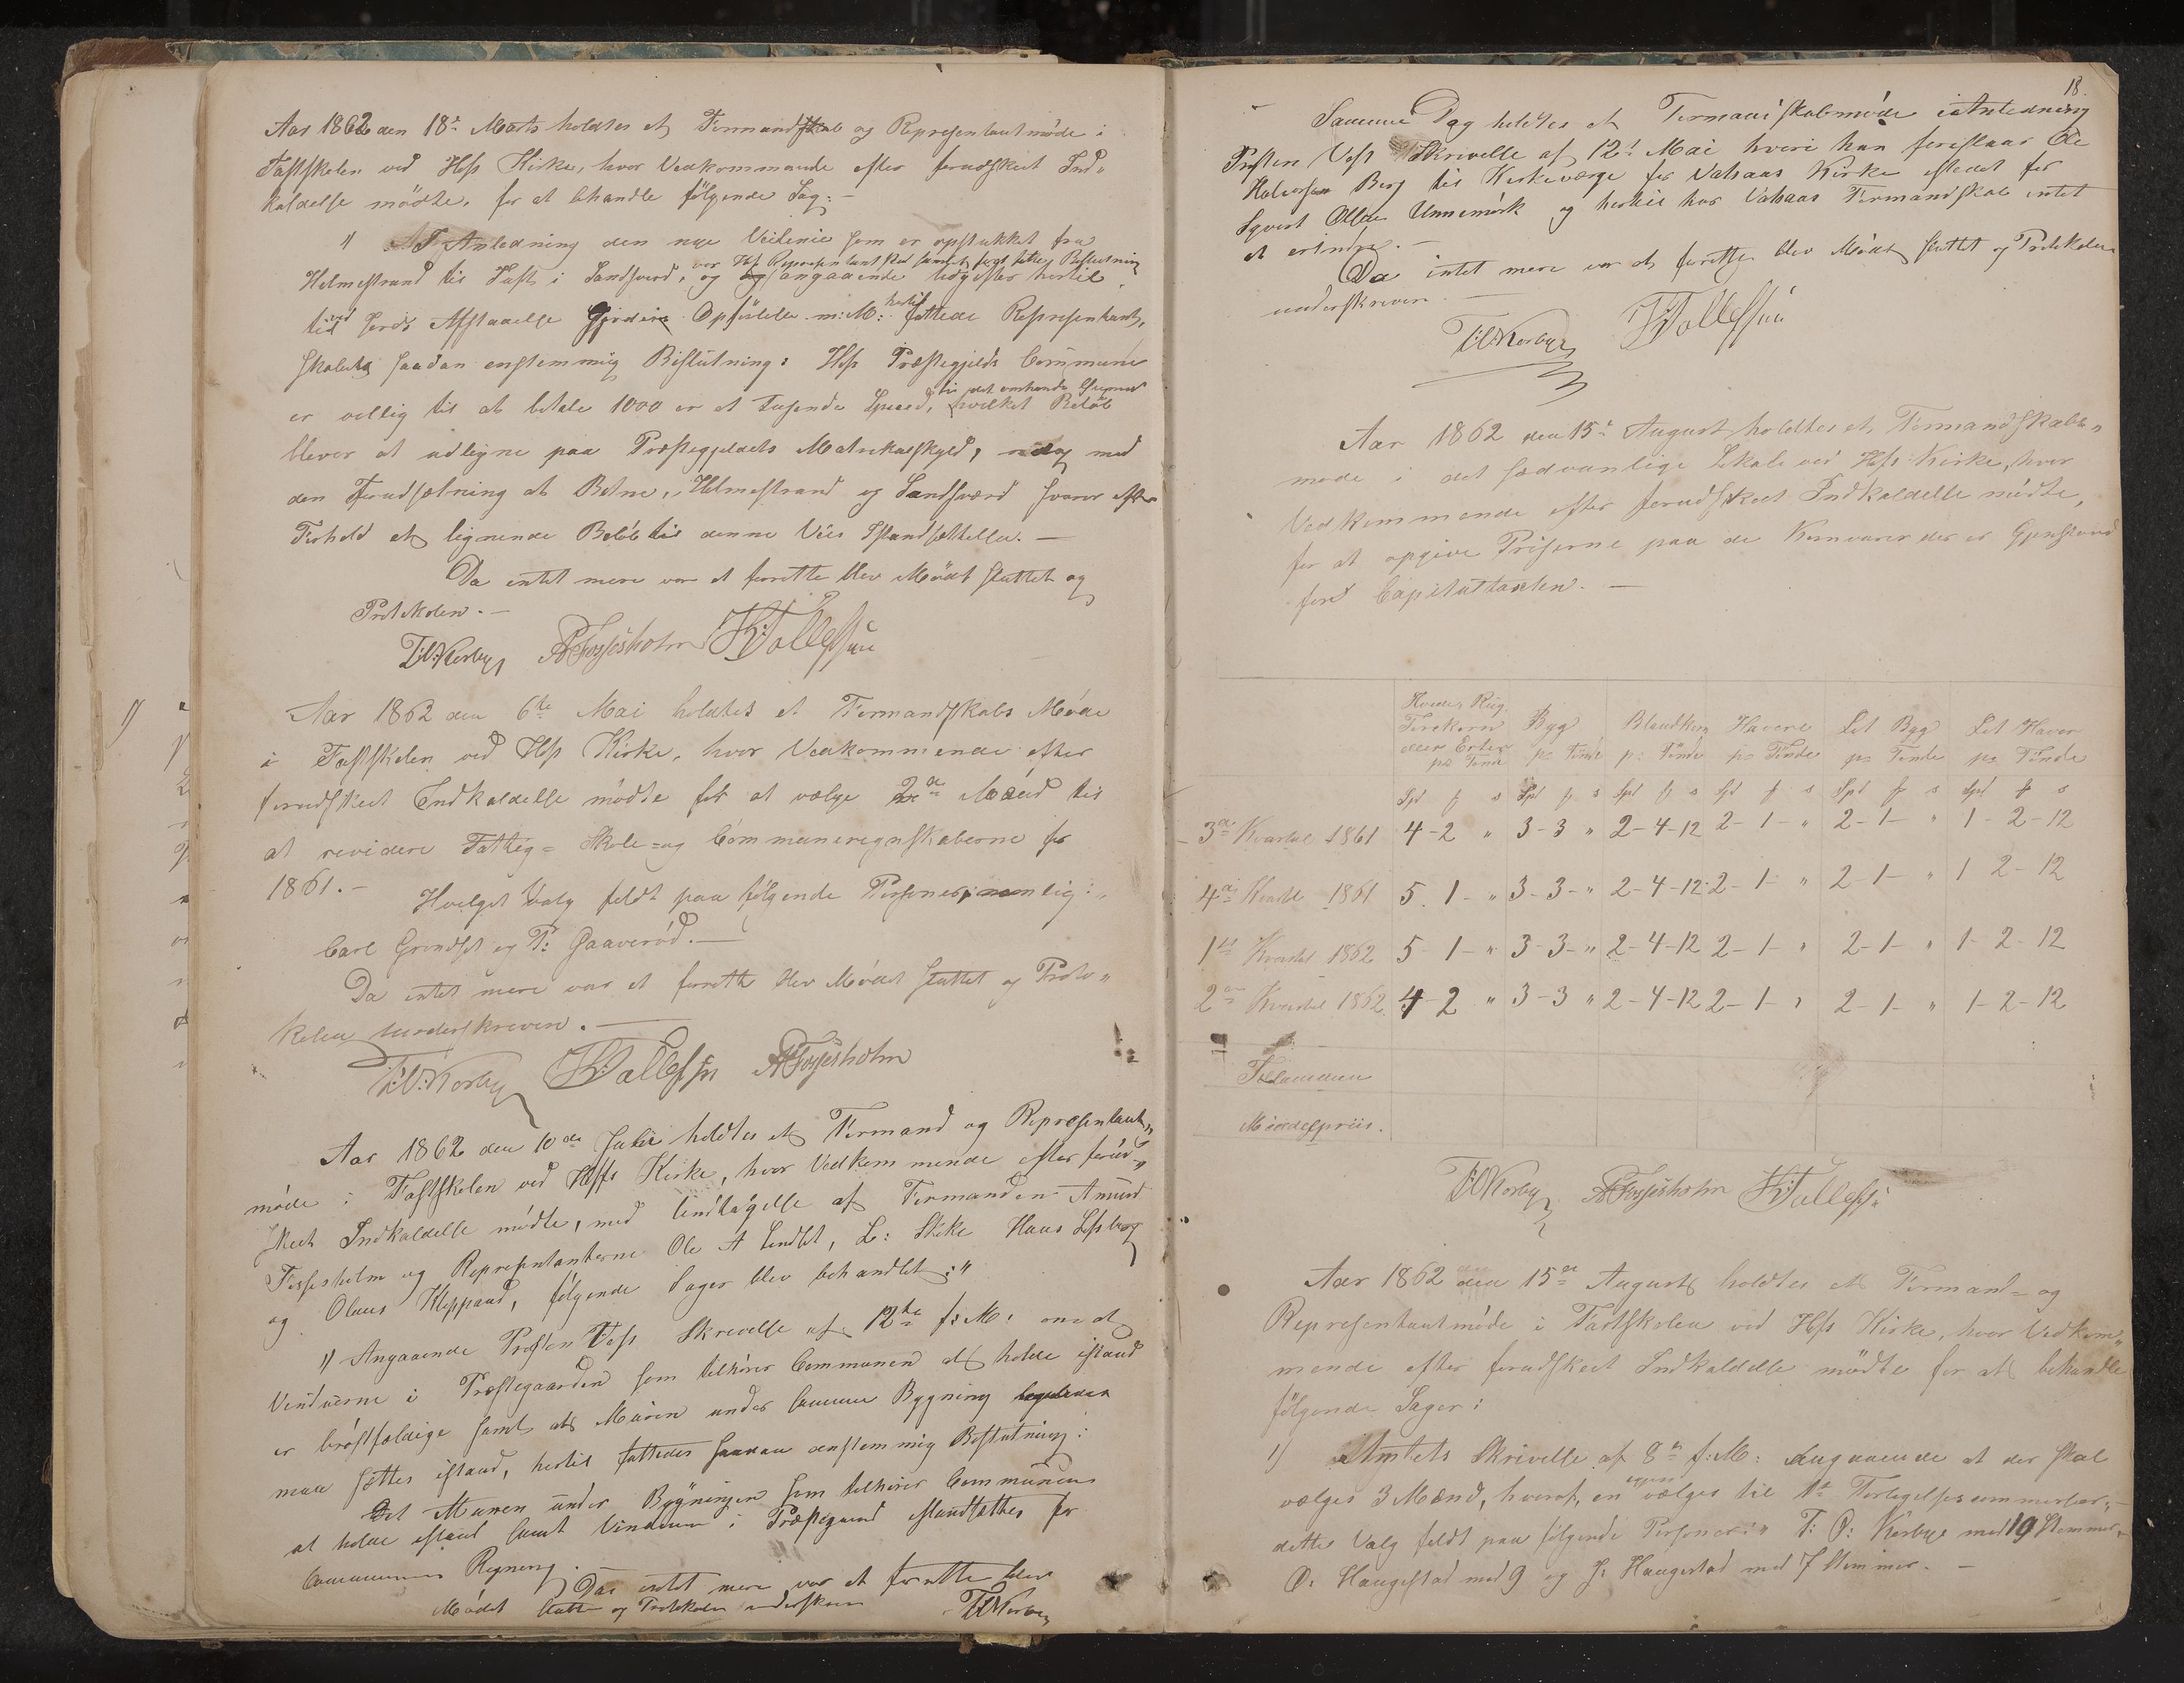 Aar 1862 den 18de Marts holdtes et Formandskab og Representantmöde i
Fastskolen ved Hofs Kirke, hvor Vedkommende efter forudskeet Ind-
kaldelse mödte, for at behandle fölgende Sag: —
1) I Anledning den nye Veilinie som er opstukket fra
var Hofs Representantskab samlet
Beslutning
Holmestrand til i Sandsverd, og angaaende hertil
ved Jords Afstaaelse m: M: hertil fattede Represhentant-
skabet saadan enstemmig Beslutning: Hofs Præstegjelds Commune
er villig til at betale 1000 er et Tusende Specd, hvilket Beløb
bliver at udligne paa Præstegjeldets Matrikulskyld, med
den Forudsætning at Botne, Holmestrand og Sandsverd svarer efter
Forhold et lignende Belöb til denne Veis Istandsættelse. —
Da intet mere var at forrette blev Mödet sluttet og
Protokolen. —
T.O.Korbye A Fossesholm K Tollefsen
Aar 1862 den 6te Mai holdtes et Formandskabs Möde
i Fastskolen ved Hofs Kirke, hvor Vedkommende efter
forudskeet Indkaldelse mödte for at vælge 2de Mænd til
at revidere Fattig= Skole= og Communeregnskaberne for
1861. —
Hvilget Valg feldt paa fölgende Personer, nemlig:
Carl Grendset og P: Gaaseröd. —
Da intet mere var at forrette blev Mödet sluttet og Proto-
kolen underskreven. —
T.O.Korbye K Tollefsen A Fossesholm
Aar 1862 den 10de holdtes et Formand og Representant-
möde i Fastskolen ved Hoffs Kirke, hvor Vedkommende efter forud-
skeet Indkaldelse mödte, med Undtagelse af Formanden Amund
Fossesholm og Representanterne Ole A L: Hans
og Olaus Kleppaas, fölgende Sager blev behandlet:
1) Angaaende Presten Vofs Skrivelse af 12te f: M: om at
Vinduerne i Præstegaarden som tilhörer Communen at holde istand
er bröstfeldige samt at Muren under samme Bygning
maa settes istand, hertil fattedes saadan enstemmig Beslutning:
At Muren under Bygningen som tilhörer Communens
at holde istand samt Vinduer i Præstegaard istandsættes for
Communens Regning. —
Da intet mere var at forrette blev
Mödet sluttet og Protokolen underskreven T.O.Korbye
18.
Samme Dag holdtes et Formandskabsmöde i Anledning
Presten Vofs Skrivelse af 12te Mai hvori han foreslaar Ole
Halvorsen Berg til Kirkeværge for Vahaas Kirke istedet for
Syvert Olsen Unnemörk og hertil har Vahaas Formandskab intet
at erindre. —
Da intet mere var at forrette blev Mödet sluttet og Protokolen
underskreven. —
T.O.Korbye K Tollefsen
Aar 1862 den 15de August holdtes et Formandskabs-
möde i det sædvanlige Lokale ved Hofs Kirke, hvor
Vedkommende efter forudskeet Indkaldelse mödte,
for at opgive Priserne paa de Kornvarer der er Gjenstand
for Capitulttaxten. —
Hvede, Rug Torskorn eller Erter pr Tönde | Byg pr Tönde | Blandkorn pr Tönde | Havre pr Tönde | Let Byg pr Tönde | Let Havre pr Tönde
Spd β s | Spd β s | Spd β s | Spd β s | Spd β s | Spd β s
3de Kvartal 1861 4-2 " 3-3 " 2-4-12 2-1- " 2-1- " 1-2-12
4de Kvartal 1861 5.1- " 3-3- " 2-4-12 2-1- " 2-1- " 1 2-12
1ste Kvartal 1862 5-1- " 3-3- " 2-4-12 2-1- " 2-1- " 1-2-12
2det Kvartal 1862 4-2 " 3-3 " 2-4-12 2-1- " 2-1- " 1-2-12
Tilsammen
Middelpriis.
T.O.Korbye A Fossesholm K Tollefsen
Aar 1862 den 15de August holdtes et Formand= og
Representantmöde i Fastskolen ved Hofs Kirke, hvor Vedkom-
mende efter forudskeet Indkaldelse mödte for at behandle
fölgende Sager:
1) Amtets Skrivelse af 8de f: M: Angaaende at der skal
vælges 3 Mænd, hveraf en vælges til
dette Valg feldt paa fölgende Personer: T: O: Korbye med 19 Stemmer,
O: Haugestad med 9 og J: Haugestad med 7 Stemmer. —